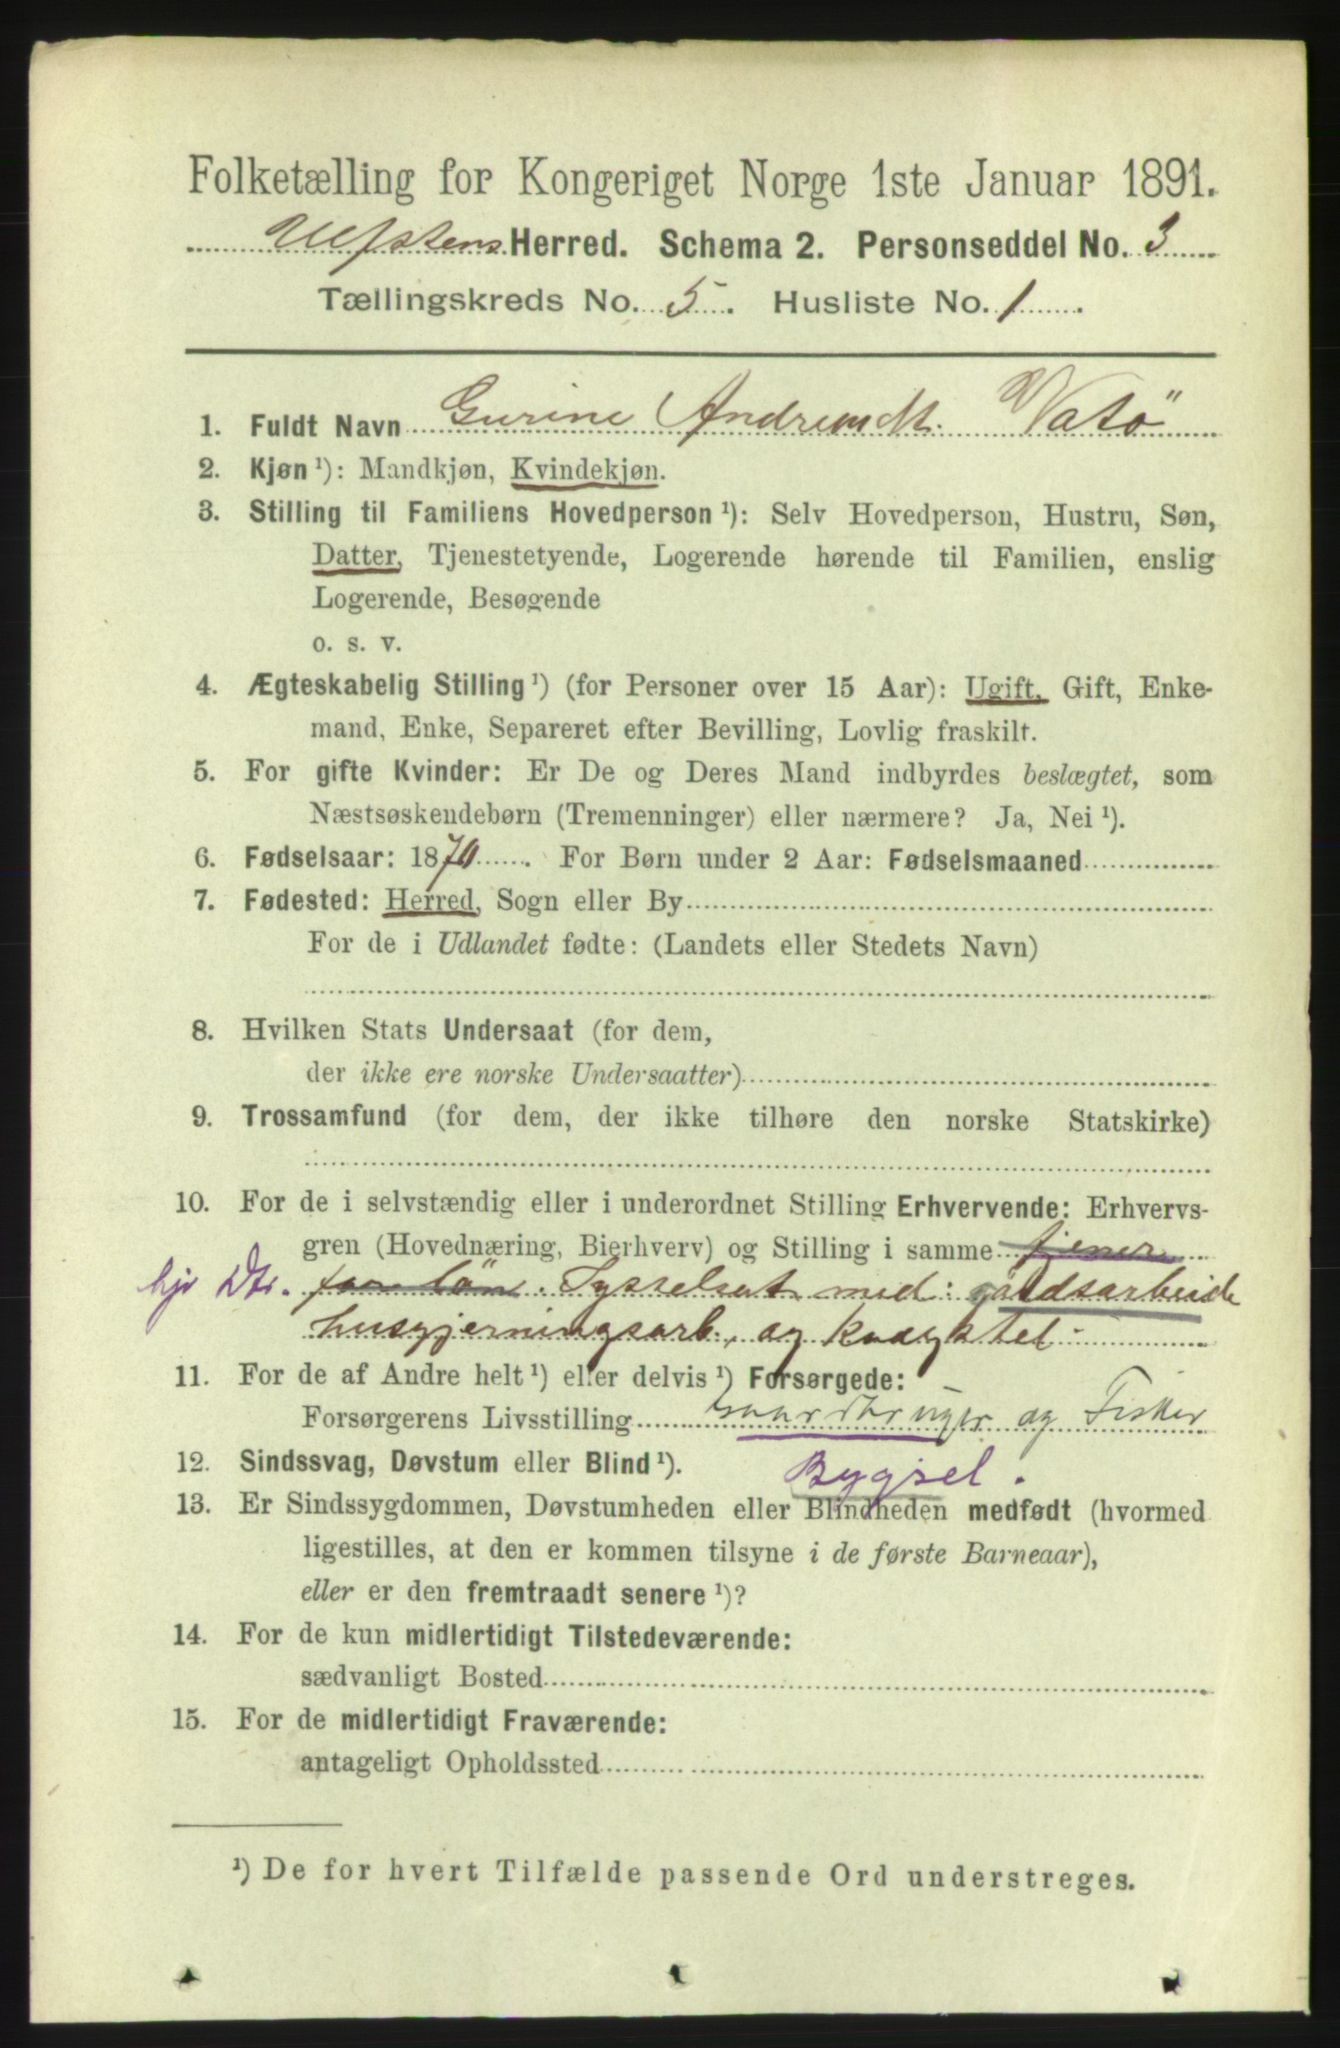 Folketælling for Kongeriget Norge 1ste Januar 1891.
Ulfstens Herred. Schema 2. Personseddel No. 3
Tællingskreds No. 5. Husliste No. 1
1. Fuldt Navn Gurine Andreasdt. Vatö
2. Kjøn ¹): Mandkjøn, Kvindekjøn.
3. Stilling til Familiens Hovedperson ¹): Selv Hovedperson, Hustru, Søn,
Datter, Tjenestetyende, Logerende hørende til Familien, enslig
Logerende, Besøgende
o. s. v.
4. Ægteskabelig Stilling ¹) (for Personer over 15 Aar): Ugift, Gift, Enke-
mand, Enke, Separeret efter Bevilling, Lovlig fraskilt.
5. For gifte Kvinder: Er De og Deres Mand indbyrdes beslægtet, som
Næstsøskendebørn (Tremenninger) eller nærmere? Ja, Nei ¹).
6. Fødselsaar: 1870. For Børn under 2 Aar: Fødselsmaaned
7. Fødested: Herred, Sogn eller By
For de i Udlandet fødte: (Landets eller Stedets Navn)
8. Hvilken Stats Undersaat (for dem,
der ikke ere norske Undersaatter)
9. Trossamfund (for dem, der ikke tilhøre den norske Statskirke)
10. For de i selvstændig eller i underordnet Stilling Erhvervende: Erhvervs-
gren (Hovednæring, Bierhverv) og Stilling i samme tjener
hjv Dtr. for lön. Sysselsat med: gårdsarbeide
husgjerningsarb. og kvægstel
11. For de af Andre helt ¹) eller delvis ¹) Forsørgede:
Forsørgerens Livsstilling Gaardbruger og Fisker
12. Sindssvag, Døvstum eller Blind ¹). Bygsel.
13. Er Sindssygdommen, Døvstumheden eller Blindheden medfødt (hvormed
ligestilles, at den er kommen tilsyne i de første Barneaar),
eller er den fremtraadt senere ¹)?
14. For de kun midlertidigt Tilstedeværende:
sædvanligt Bosted
15. For de midlertidigt Fraværende:
antageligt Opholdssted
¹) De for hvert Tilfælde passende Ord understreges.